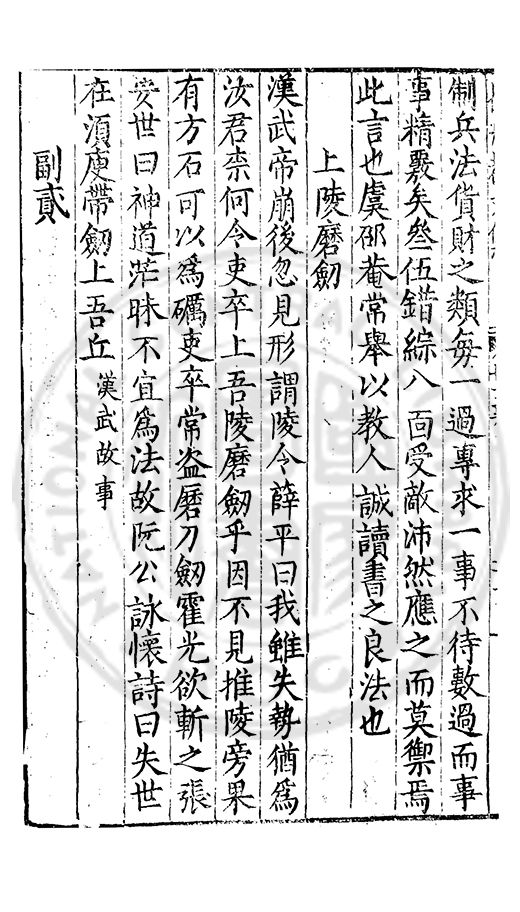 制兵法貨財之類每一過專求一事不待數過而事
事精覈矣叄伍錯綜八面受敵沛然應之而莫禦焉
此言也虞邵菴常舉以教人誠讀書之良法也
上陵磨劒
漢武帝崩後忽見形謂陵令薛平曰我雖失勢猶爲
汝君柰何令吏卒上吾陵磨劒乎因不見推陵旁果
有方石可以爲礪吏卒常盗磨刀劒霍光欲斬之張
安世曰神道茫昧不宜爲法故阮公詠懷詩曰失世
在湏臾帶劒上吾丘 漢武故事
副貳